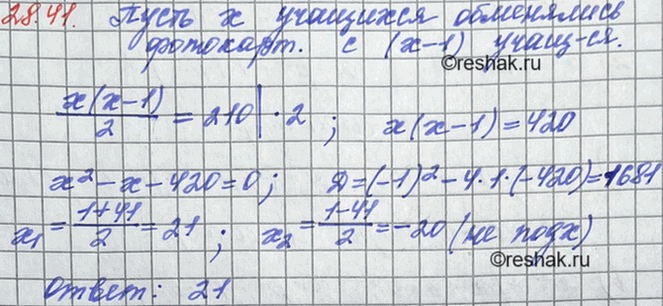 28.41. Пусть x учащихся обменялись
фотокарт. с (x-1) учащ-ся.
©reshak.ru
x(x-1)/2 = 210 | · 2 ; x(x-1) = 420
x² - x - 420 = 0; Д = (-1)² - 4·1·(-420) = 1681
x₁ = (1+41)/2 = 21 ; x₂ = (1-41)/2 = -20 (не подх)
©reshak.ru
Ответ: 21